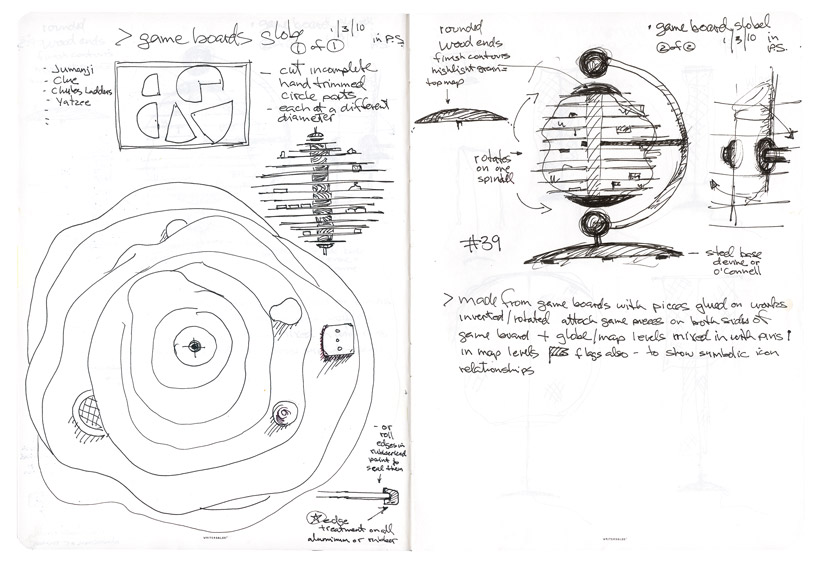 > game boards slobe 1/3/10
① of ① in P.S.
- Jumanji
- Clue
- Chutes Ladders
- Yatzee
- cut incomplete
hand trimmed
circle parts
- each at a different
diameter
- or
roll
edges in
rubberized
paint to
seal them
edge
treatment on all
aluminum or rubber
WHITELINES
rounded
wood ends
finish contours
highlight grain =
top map
• game board slobel
② of ② 1/3/10 in
P.S.
rotates
on one
spindle
#39
steel base
devine or
O'Connell
> made from game boards with pieces glued on works
inverted/rotated attach game pieces on both sides of
game board + globe/map levels mixed in with pins!
in map levels flags also - to show symbolic icon
relationships